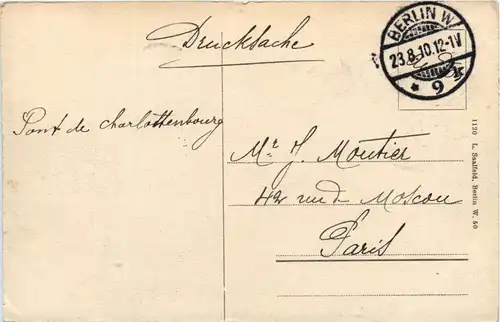 Drucksache
BERLIN W.
23.8.10.12-1V
* 9
Pont de charlottenbourg
Mr J. Moutier
42 rue de Moscou
Paris
1120 L. Saalfeld, Berlin W. 50